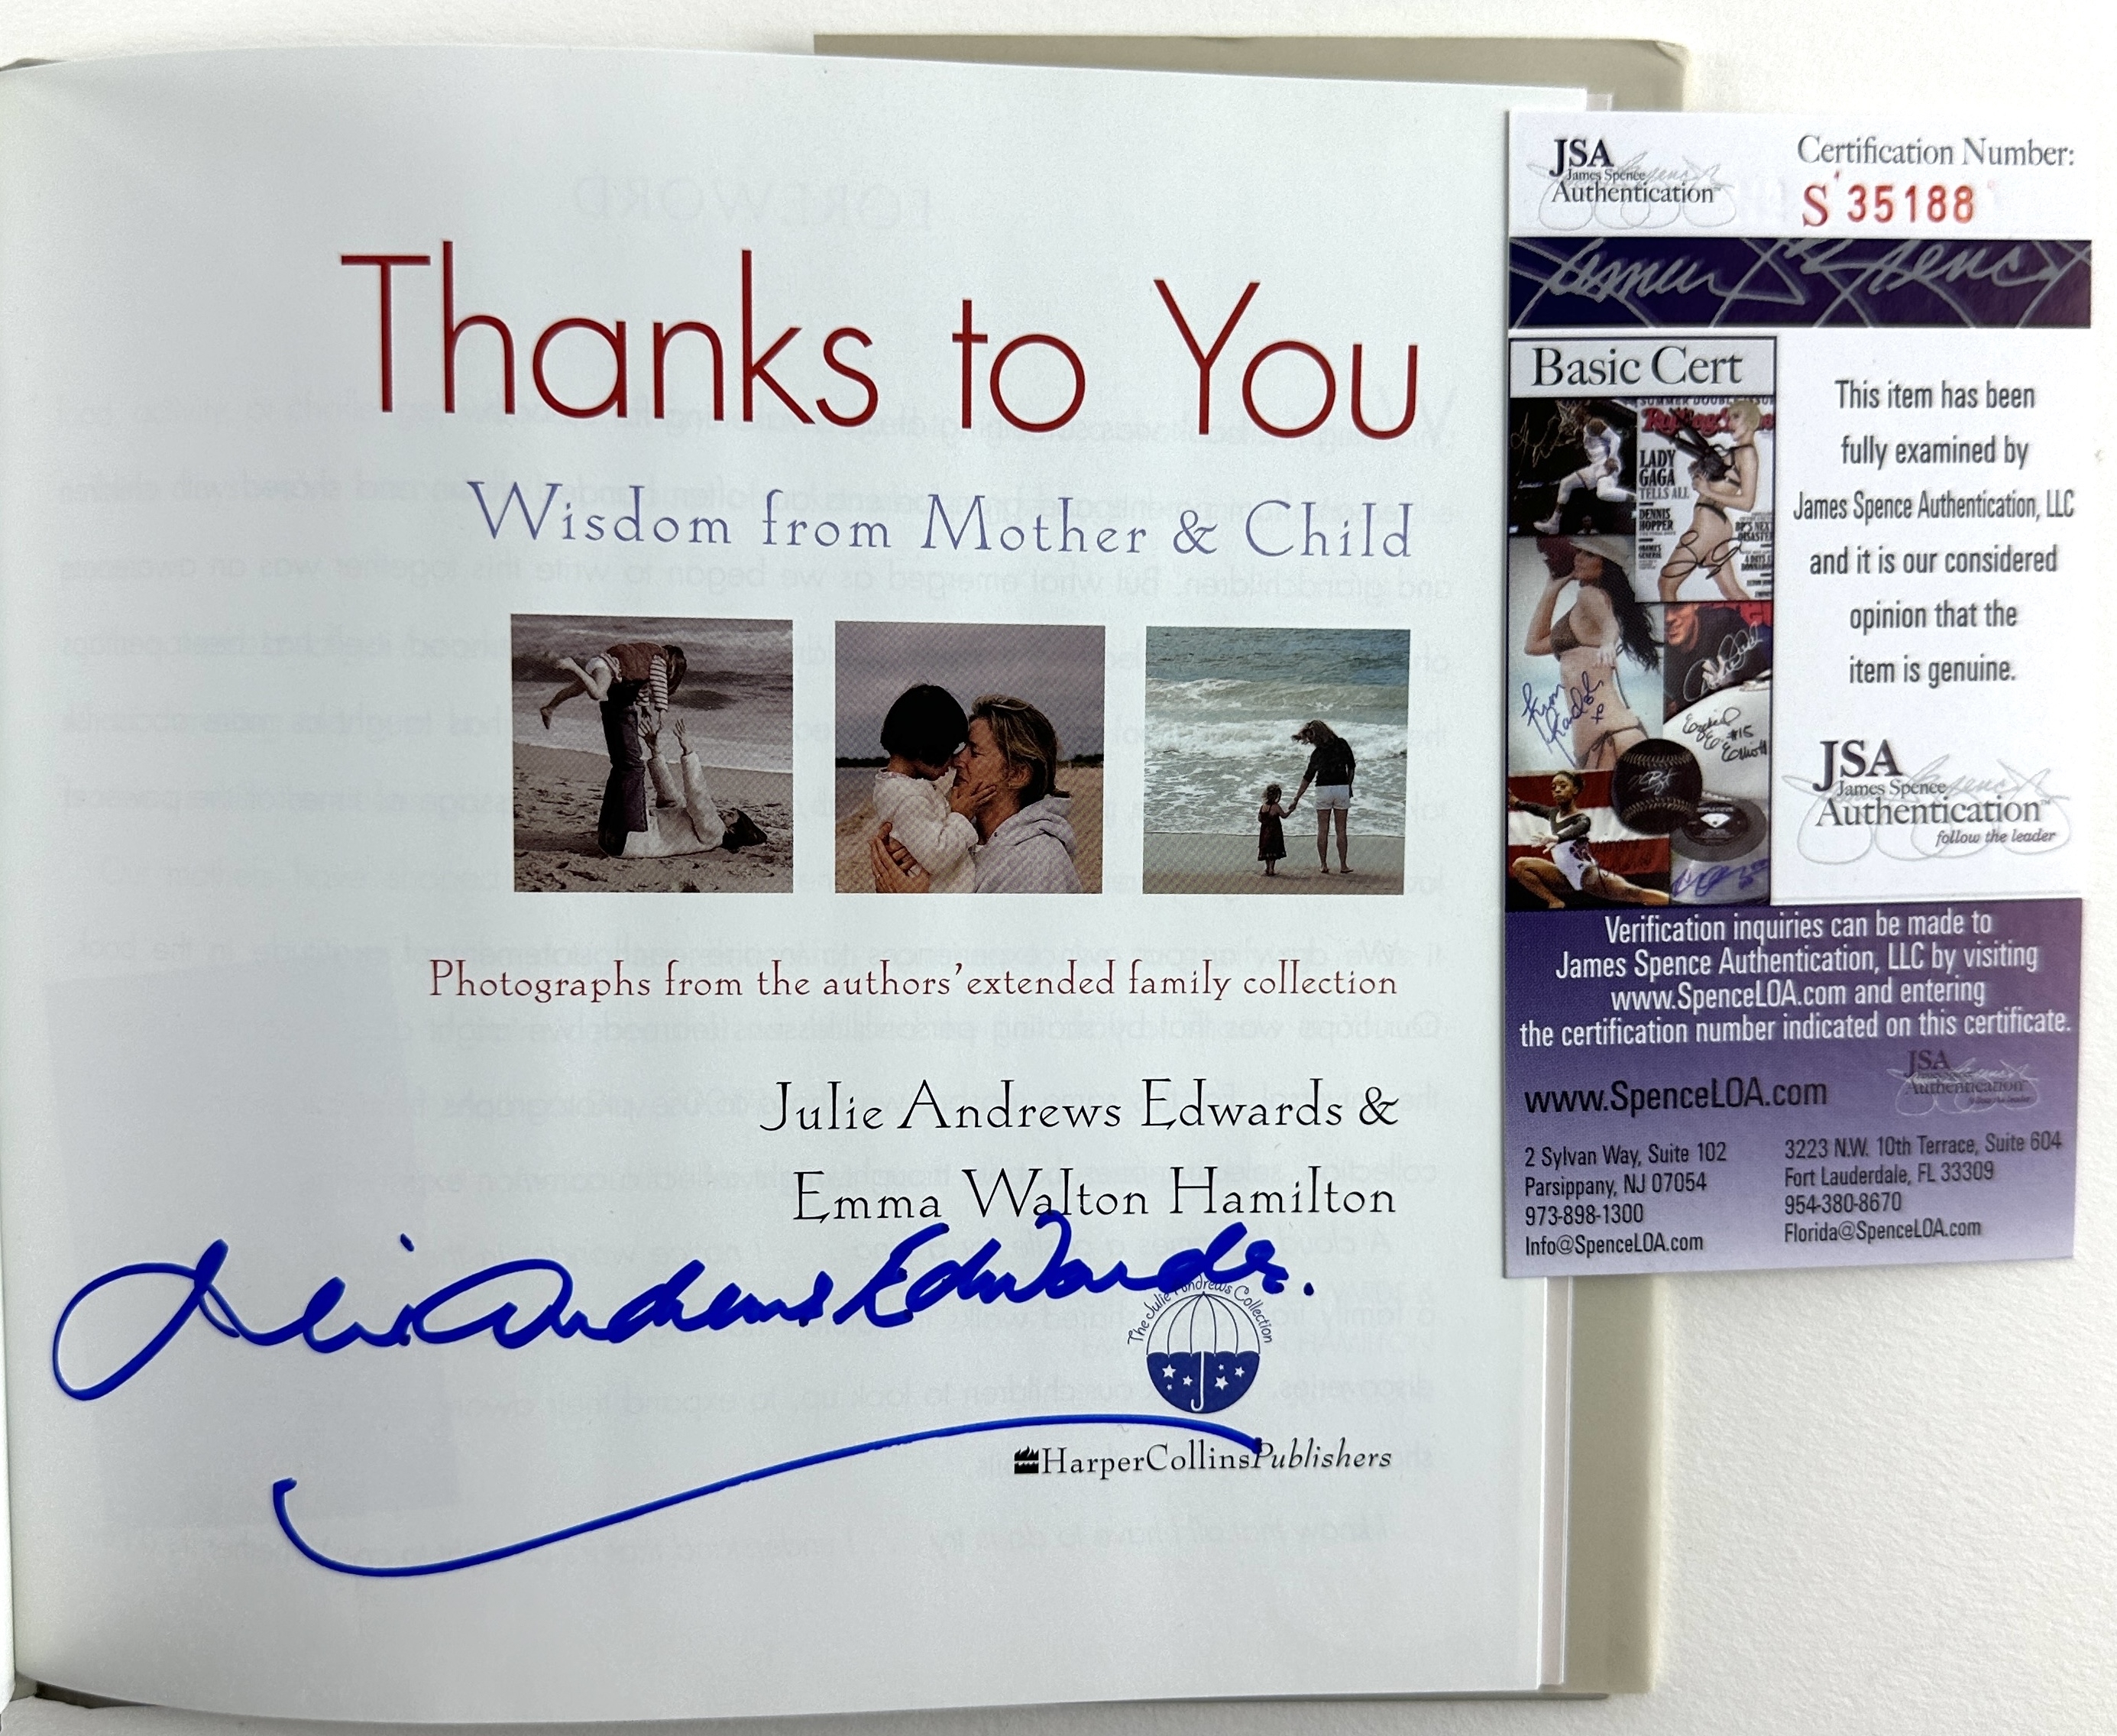 Thanks to You
Wisdom from Mother & Child
Photographs from the authors' extended family collection
Julie Andrews Edwards &
Emma Walton Hamilton
Julie Andrews Edwards.
The Julie Andrews Collection
HarperCollinsPublishers
JSA
James Spence
Authentication™
Certification Number:
S 35188
James Spence
Basic Cert
SUMMER DOUBLE ISSUE
Rolling
LADY
GAGA
TELLS ALL
DENNIS
HOPPER
#15
This item has been
fully examined by
James Spence Authentication, LLC
and it is our considered
opinion that the
item is genuine.
JSA
James Spence
Authentication™
follow the leader
Verification inquiries can be made to
James Spence Authentication, LLC by visiting
www.SpenceLOA.com and entering
the certification number indicated on this certificate.
www.SpenceLOA.com
JSA
Authentication
2 Sylvan Way, Suite 102
Parsippany, NJ 07054
973-898-1300
Info@SpenceLOA.com
3223 N.W. 10th Terrace, Suite 604
Fort Lauderdale, FL 33309
954-380-8670
Florida@SpenceLOA.com